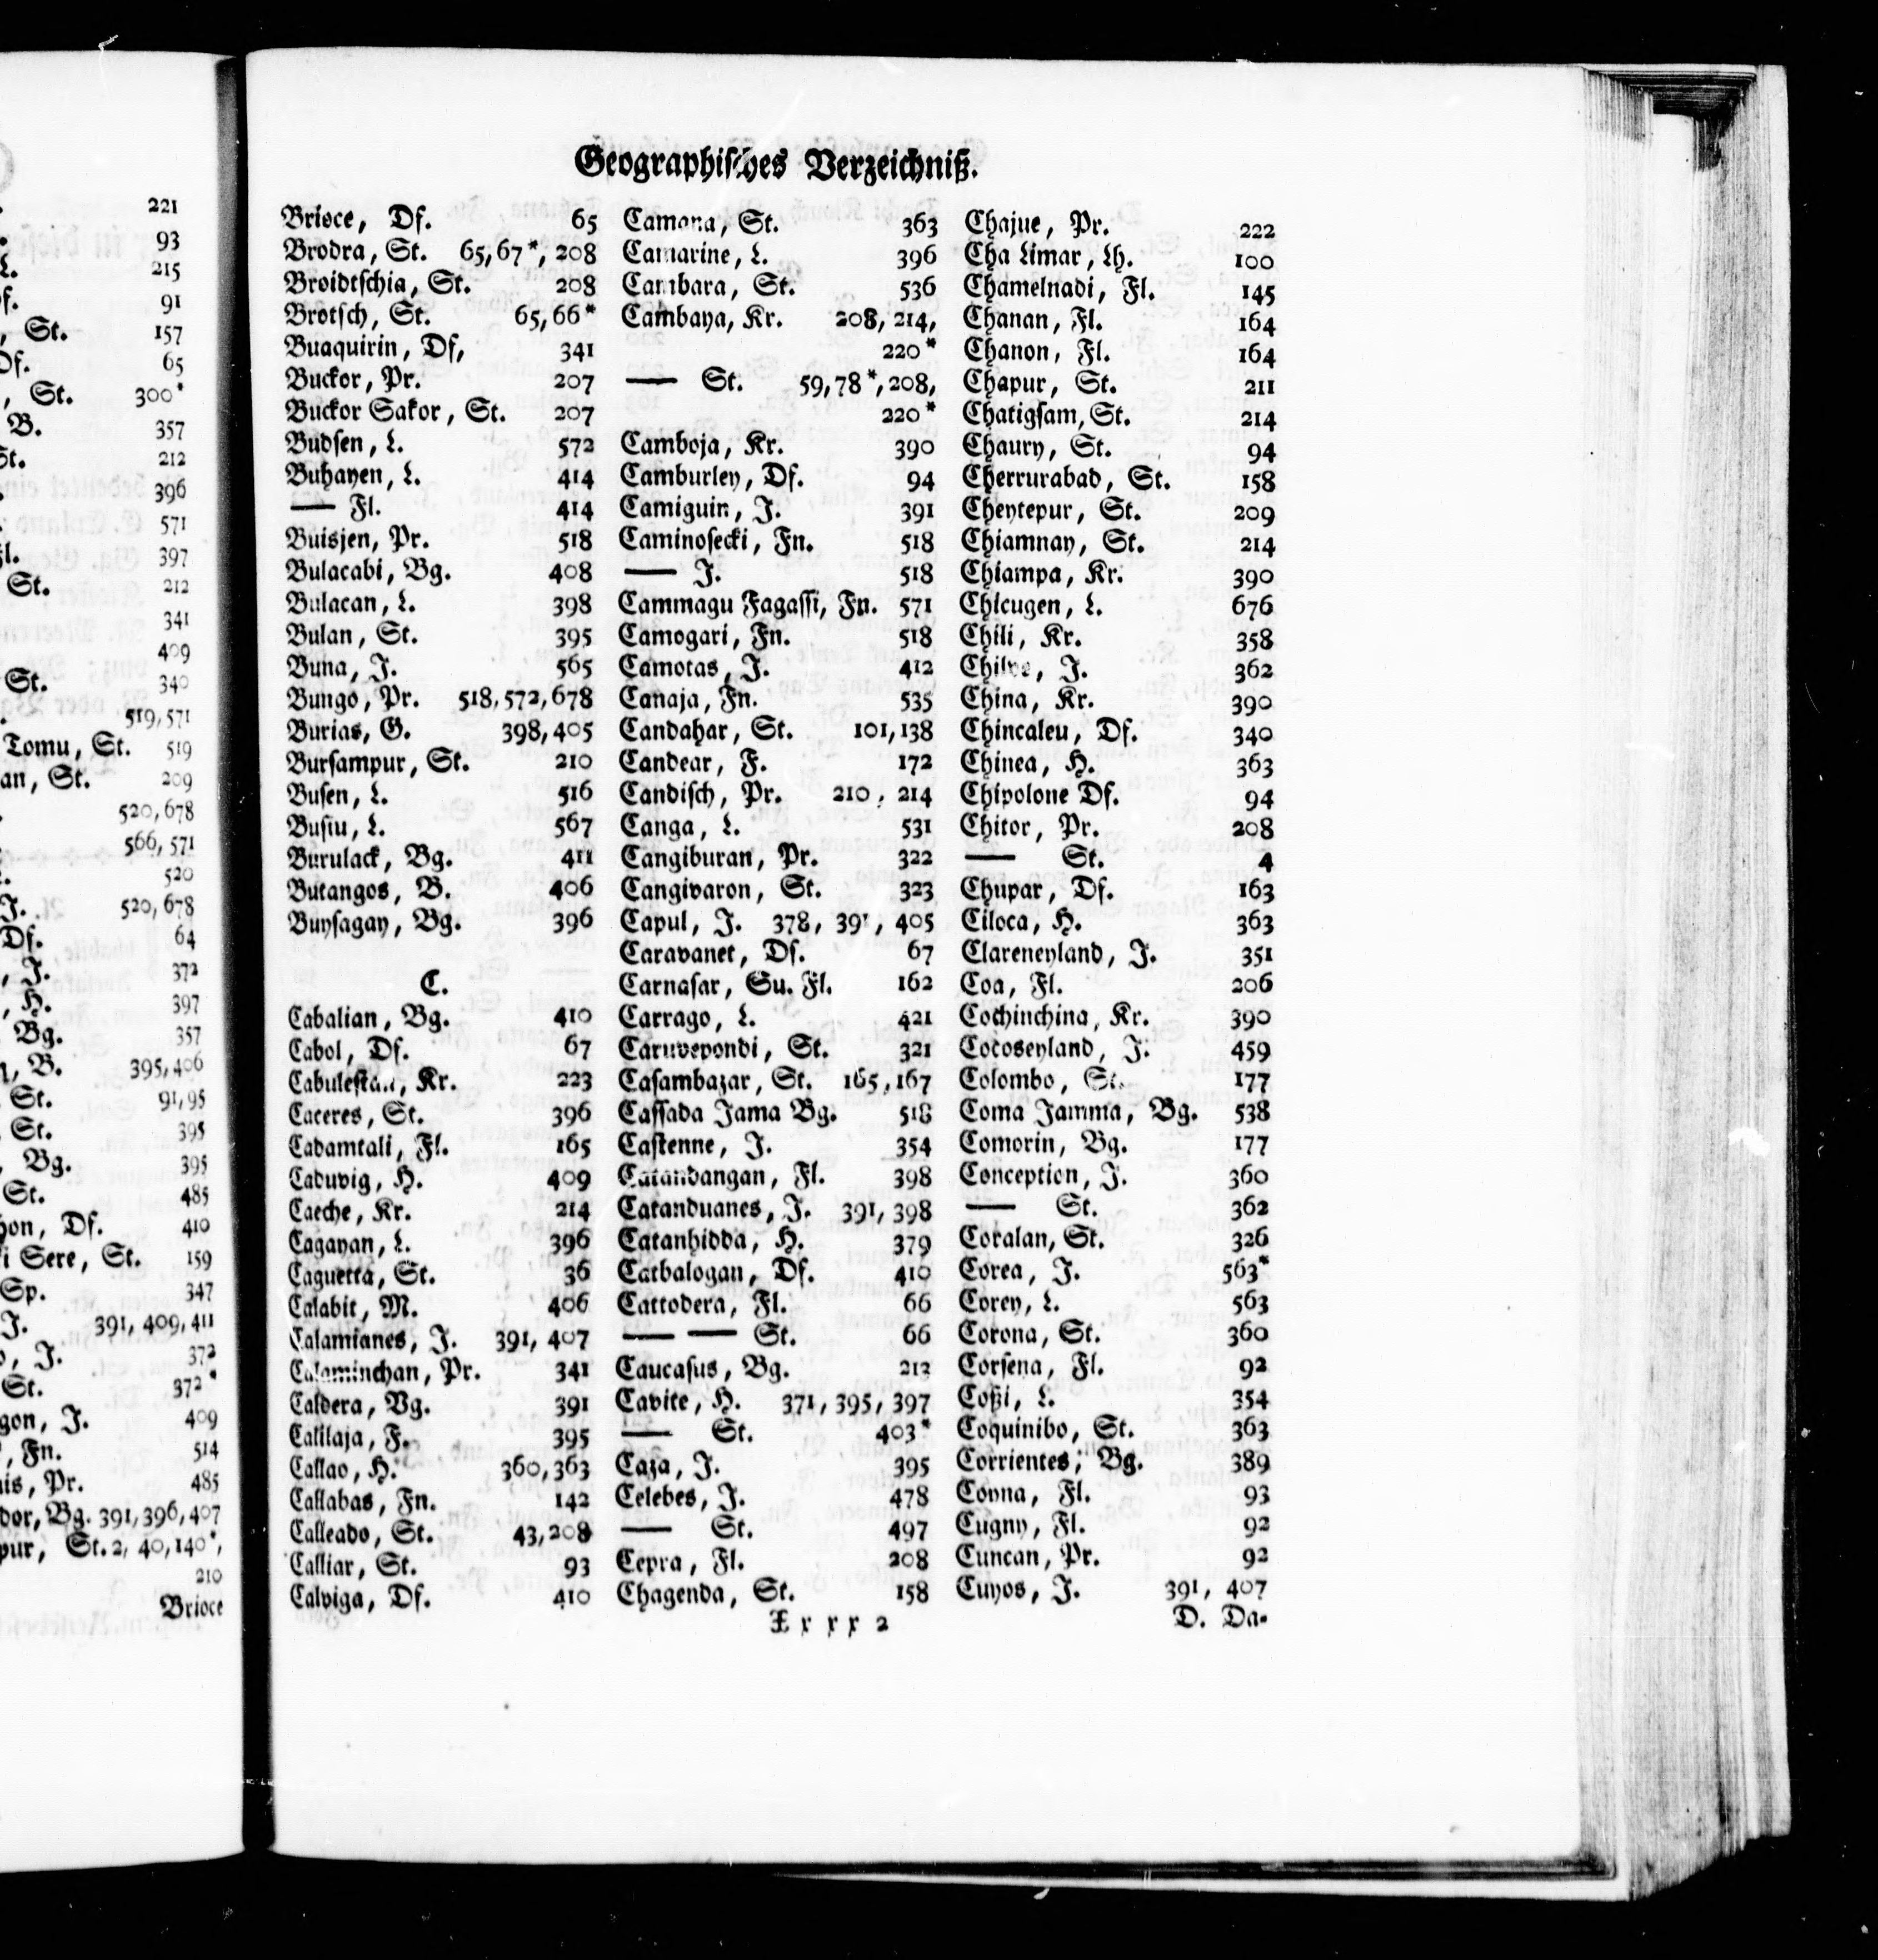 221
93
L. 215
f. 91
, St. 157
Df. 65
, St. 300*
B. 357
St. 212
396
571
Fl. 397
St. 212
341
409
St. 340
519,571
Tomu, St. 519
an, St. 209
520,678
566,571
520
J. 520,678
Df. 64
, J. 372
, H. 397
Bg. 357
, B. 395,406
St. 91,95
St. 395
, Bg. 395
St. 485
hon, Df. 410
i Sere, St. 159
Sp. 347
J. 391,409,411
, J. 372
St. 372*
gon, J. 409
, Fn. 514
is, Pr. 485
dor, Bg. 391,396,407
pur, St. 2, 40,140*,
210
Brioce
Geographiſches Verzeichniß.
Brioce, Df. 65
Brodra, St. 65,67*, 208
Broidtſchia, St. 208
Brotſch, St. 65,66*
Buaquirin, Df, 341
Buckor, Pr. 207
Buckor Sakor, St. 207
Budſen, L. 572
Buhayen, L. 414
—— Fl. 414
Buisjen, Pr. 518
Bulacabi, Bg. 408
Bulacan, L. 398
Bulan, St. 395
Buna, J. 565
Bungo, Pr. 518,572,678
Burias, G. 398,405
Burſampur, St. 210
Buſen, L. 516
Buſiu, L. 567
Burulack, Bg. 411
Butangos, B. 406
Buyſagay, Bg. 396
C.
Cabalian, Bg. 410
Cabol, Df. 67
Cabuleſtan, Kr. 223
Caceres, St. 396
Cadamtali, Fl. 165
Caduvig, H. 409
Caeche, Kr. 214
Cagayan, L. 396
Caguetta, St. 36
Calabit, M. 406
Calamianes, J. 391, 407
Calaminchan, Pr. 341
Caldera, Vg. 391
Calilaja, F. 395
Callao, H. 360,363
Callabas, Fn. 142
Calleado, St. 43,208
Calliar, St. 93
Calviga, Df. 410
Camana, St. 363
Camarine, L. 396
Cambara, St. 536
Cambaya, Kr. 208, 214,
220*
—— St. 59,78*,208,
220*
Camboja, Kr. 390
Camburley, Df. 94
Camiguin, J. 391
Caminoſecki, Fn. 518
—— J. 518
Cammagu Fagaſſi, Fn. 571
Camogari, Fn. 518
Camotas, J. 412
Canaja, Fn. 535
Candahar, St. 101,138
Candear, F. 172
Candiſch, Pr. 210, 214
Canga, L. 531
Cangiburan, Pr. 322
Cangivaron, St. 323
Capul, J. 378, 391, 405
Caravanet, Df. 67
Carnaſar, Su. Fl. 162
Carrago, L. 421
Caruvepondi, St. 321
Caſambazar, St. 165,167
Caſſada Jama Bg. 518
Caſtenne, J. 354
Catandangan, Fl. 398
Catanduanes, J. 391, 398
Catanhidda, H. 379
Catbalogan, Df. 410
Cattodera, Fl. 66
—— —— St. 66
Caucaſus, Bg. 212
Cavite, H. 371, 395, 397
—— St. 403*
Caza, J. 395
Celebes, J. 478
—— St. 497
Cepra, Fl. 208
Chagenda, St. 158
Xxxx 2
Chajue, Pr. 222
Cha Limar, Lh. 100
Chamelnadi, Fl. 145
Chanan, Fl. 164
Chanon, Fl. 164
Chapur, St. 211
Chatigſam, St. 214
Chaury, St. 94
Cherrurabad, St. 158
Cheytepur, St. 209
Chiamnay, St. 214
Chiampa, Kr. 390
Chicugen, L. 676
Chili, Kr. 358
J. 362
China, Kr. 390
Chincaleu, Df. 340
Chinea, H. 363
Chipolone Df. 94
Chitor, Pr. 208
—— St. 4
Chupar, Df. 163
Ciloca, H. 363
Clareneyland, J. 351
Coa, Fl. 206
Cochinchina, Kr. 390
Cocoseyland, J. 459
Colombo, St. 177
Coma Jamma, Bg. 538
Comorin, Bg. 177
Conception, J. 360
—— St. 362
Coralan, St. 326
Corea, J. 563*
Corey, L. 563
Corona, St. 360
Corſena, Fl. 92
Coßi, L. 354
Coquinibo, St. 363
Corrientes, Bg. 389
Covna, Fl. 93
Cugny, Fl. 92
Cuncan, Pr. 92
Cuyos, J. 391, 407
D. Da-